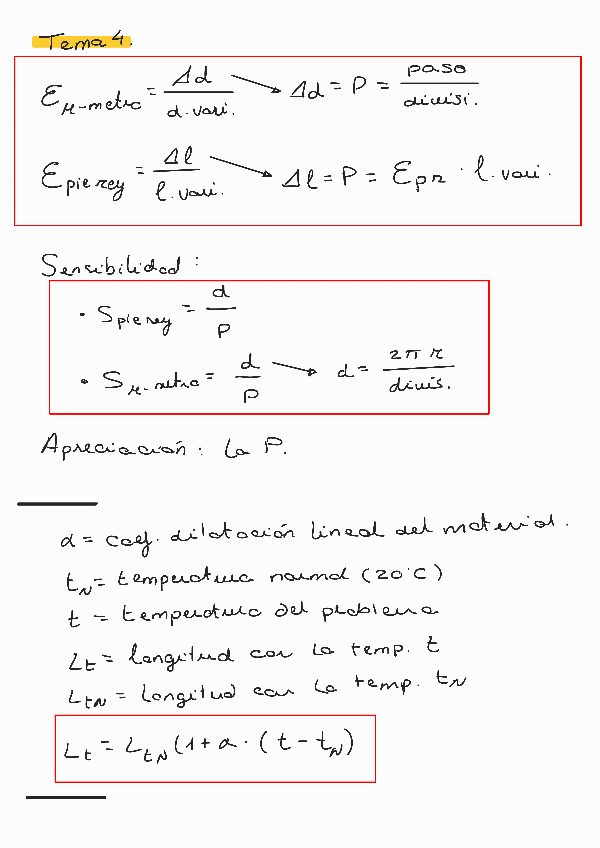 Tema 4.
E μ-metro = Δd / d.vari. → Δd = P = paso / divisi.
E pie rey = Δl / l.vari. → Δl = P = E pr · l.vari.
Sensibilidad :
• S pie rey = d / P
• S μ-metro = d / P → d = 2π r / divis.
Apreciación : la P.
α = coef. dilatación lineal del material.
tN = temperatura normal (20°C)
t = temperatura del problema
Lt = longitud con la temp. t
LtN = longitud con la temp. tN
Lt = LtN (1 + α · (t - tN)